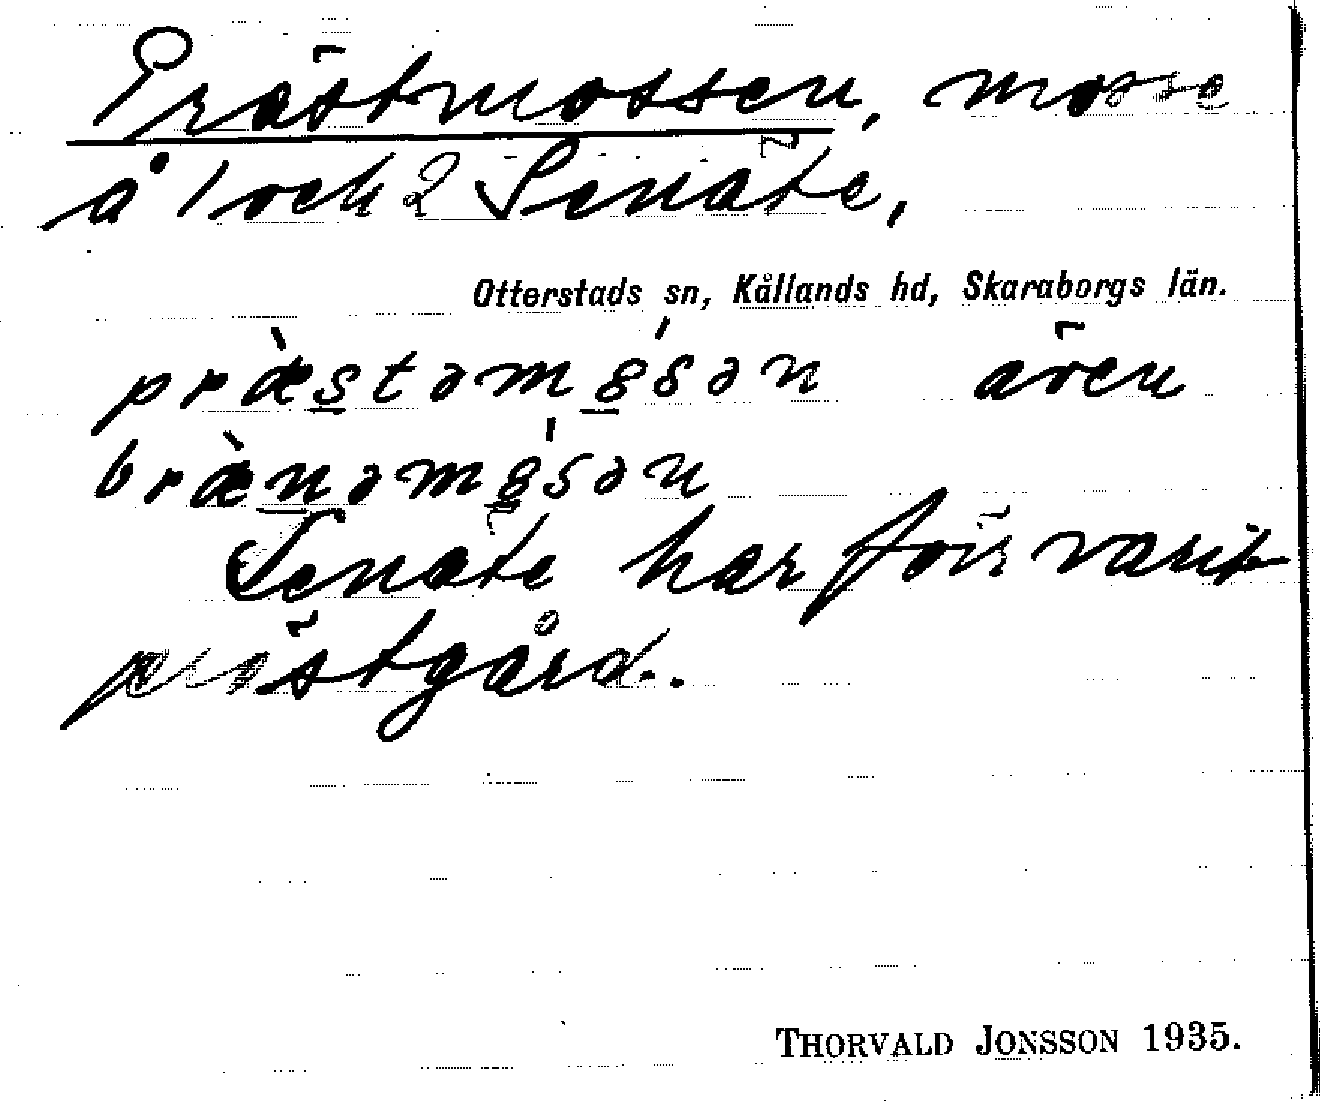 Prästmossen, mosse
å 1 och 2 Senäte,
Otterstads sn, Kållands hd, Skaraborgs län.
præ̀stəmɷ́sən även
bræ̀nəmɷ́sən
Senäte har förr varit
prästgård.
THORVALD JONSSON 1935.